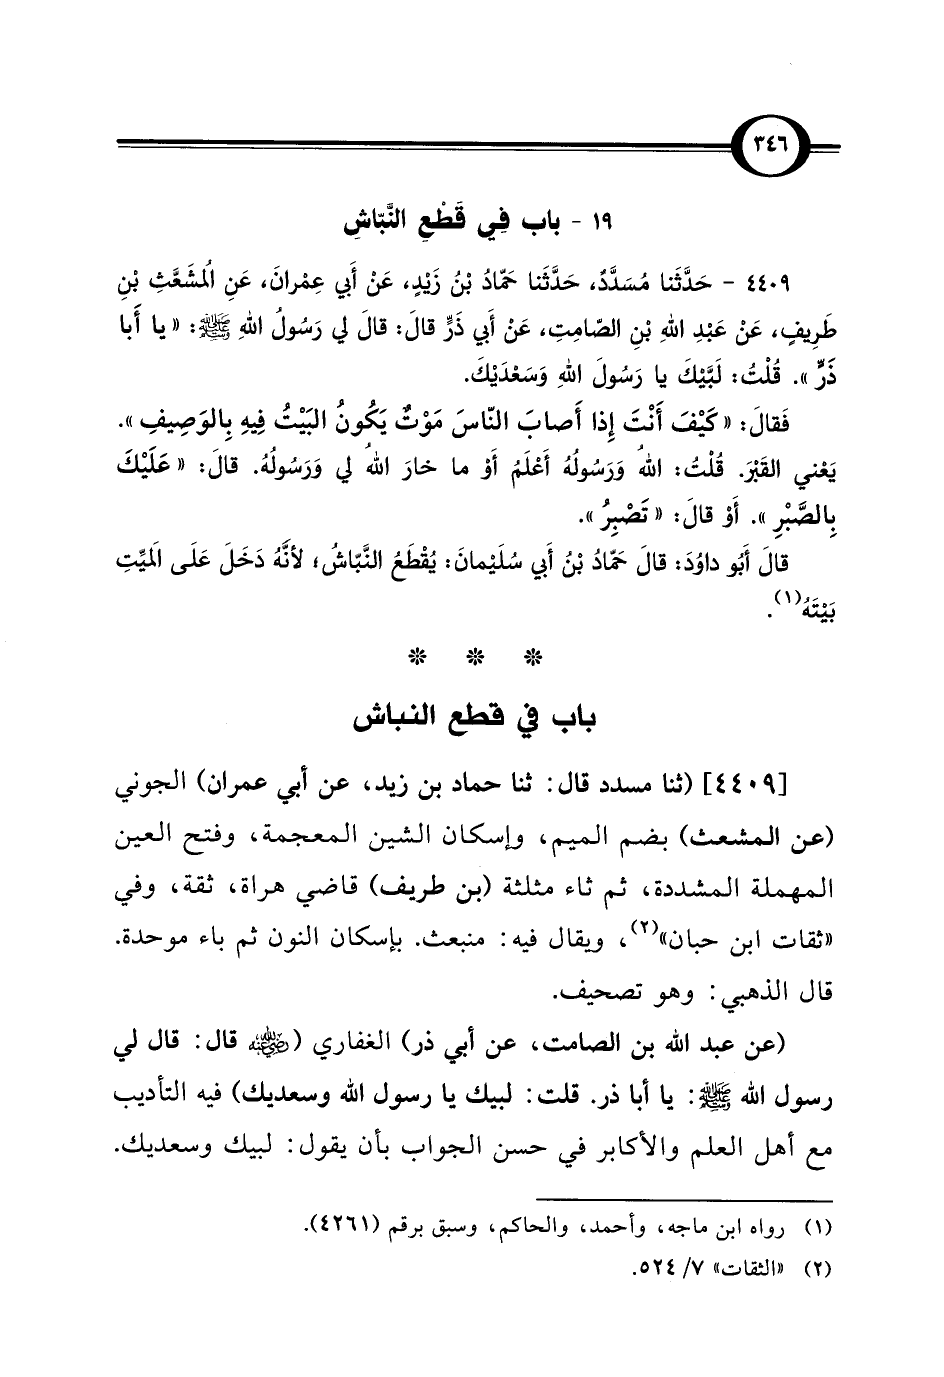 ٣٤٦
١٩ - باب فِي قَطْعِ النَّبّاشِ
٤٤٠٩ - حَدَّثَنا مُسَدَّدٌ، حَدَّثَنا حَمّادُ بْنُ زَيْدٍ، عَنْ أَبي عِمْرانَ، عَنِ الُمشَعَّثِ بْنِ
طَرِيفٍ، عَنْ عَبْدِ اللهِ بْنِ الصّامِتِ، عَنْ أَبي ذَرٍّ قالَ: قالَ لي رَسُولُ اللهِ ﷺ: « يا أَبا
ذَرٍّ ». قُلْتُ: لَبَّيْكَ يا رَسُولَ اللهِ وَسَعْدَيْكَ.
فَقالَ: « كَيْفَ أَنْتَ إِذا أَصابَ النّاسَ مَوْتٌ يَكُونُ البَيْتُ فِيهِ بِالوَصِيفِ ».
يَعْني القَبْرَ. قُلْتُ: اللهُ وَرَسُولُهُ أَعْلَمُ أَوْ ما خارَ اللهُ لي وَرَسُولُهُ. قالَ: « عَلَيْكَ
بِالصَّبْرِ ». أَوْ قالَ: « تَصْبِرُ ».
قالَ أَبُو داوُدَ: قالَ حَمّادُ بْنُ أَبي سُلَيْمانَ: يُقْطَعُ النَّبّاشُ؛ لأَنَّهُ دَخَلَ عَلَى الَميِّتِ
بَيْتَهُ(١).
* * *
باب في قطع النباش
[٤٤٠٩] (ثنا مسدد قال: ثنا حماد بن زيد، عن أبي عمران) الجوني
(عن المشعث) بضم الميم، وإسكان الشين المعجمة، وفتح العين
المهملة المشددة، ثم ثاء مثلثة (بن طريف) قاضي هراة، ثقة، وفي
«ثقات ابن حبان»(٢)، ويقال فيه: منبعث. بإسكان النون ثم باء موحدة.
قال الذهبي: وهو تصحيف.
(عن عبد الله بن الصامت، عن أبي ذر) الغفاري (رضي الله عنه قال: قال لي
رسول الله ﷺ: يا أبا ذر. قلت: لبيك يا رسول الله وسعديك) فيه التأديب
مع أهل العلم والأكابر في حسن الجواب بأن يقول: لبيك وسعديك.
(١) رواه ابن ماجه، وأحمد، والحاكم، وسبق برقم (٤٢٦١).
(٢) «الثقات» ٧/ ٥٢٤.